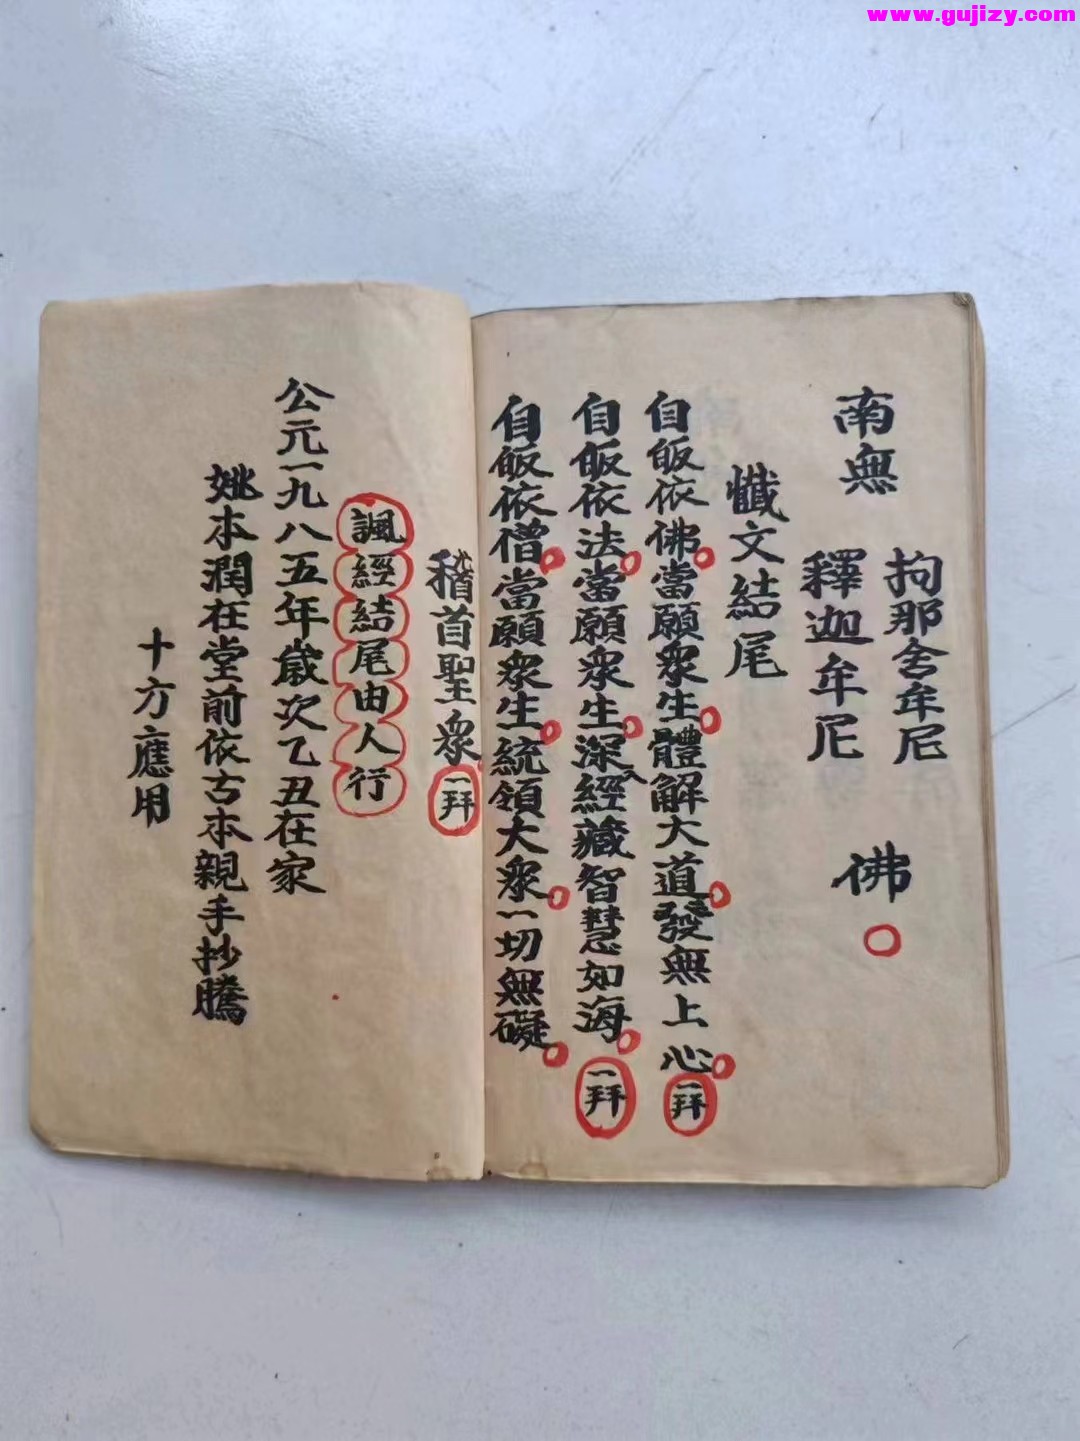 www.gujizy.com
南無
拘那舍牟尼
釋迦牟尼
佛
懺文結尾
自皈依佛當願衆生體解大道發無上心一拜
自皈依法當願衆生深入經藏智慧如海一拜
自皈依僧當願衆生統領大衆一切無礙
稽首聖衆一拜
諷經結尾由人行
公元一九八五年歲次乙丑在家
姚本潤在堂前依古本親手抄騰
十方應用